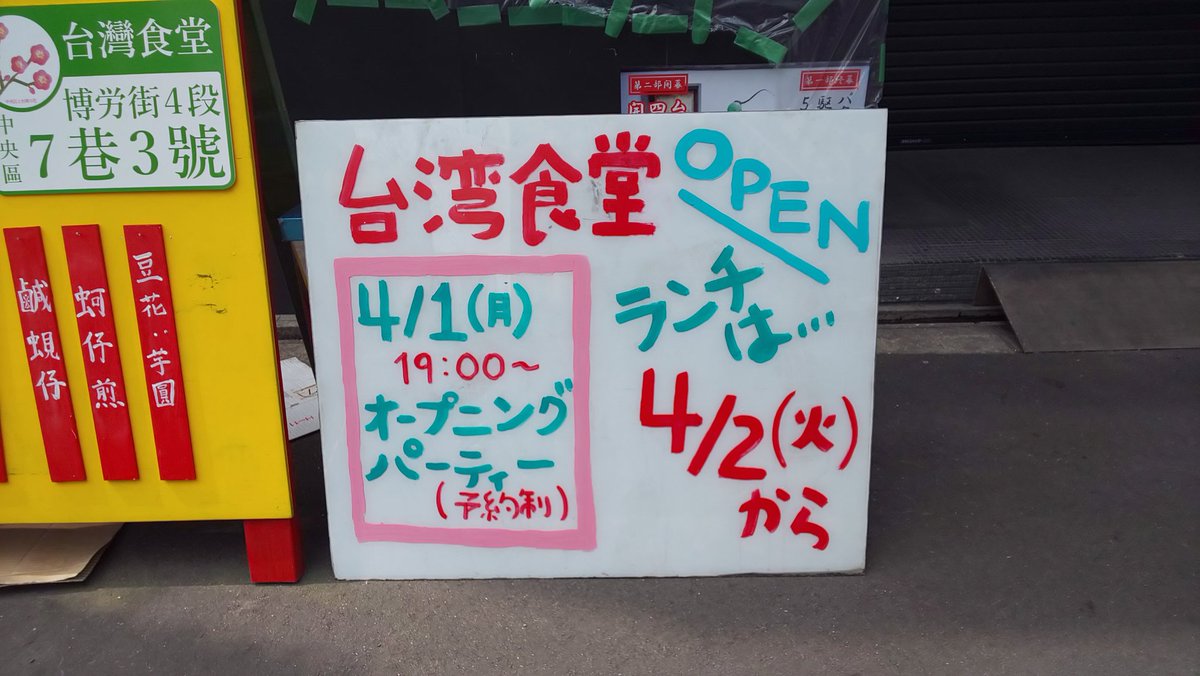 台灣食堂
博労街4段
中央區
7巷3號
鹹蜆仔
蚵仔煎
豆花:芋圓
第二部開幕
第一部終幕
台湾食堂
OPEN
4/1(月)
19:00～
オープニング
パーティー
(予約制)
ランチ
は…
4/2(火)
から